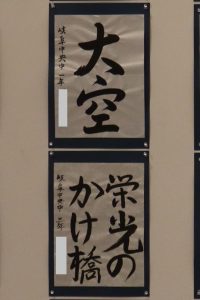 大空
岐阜中央中 一年
栄光の
かけ橋
岐阜中央中 三年